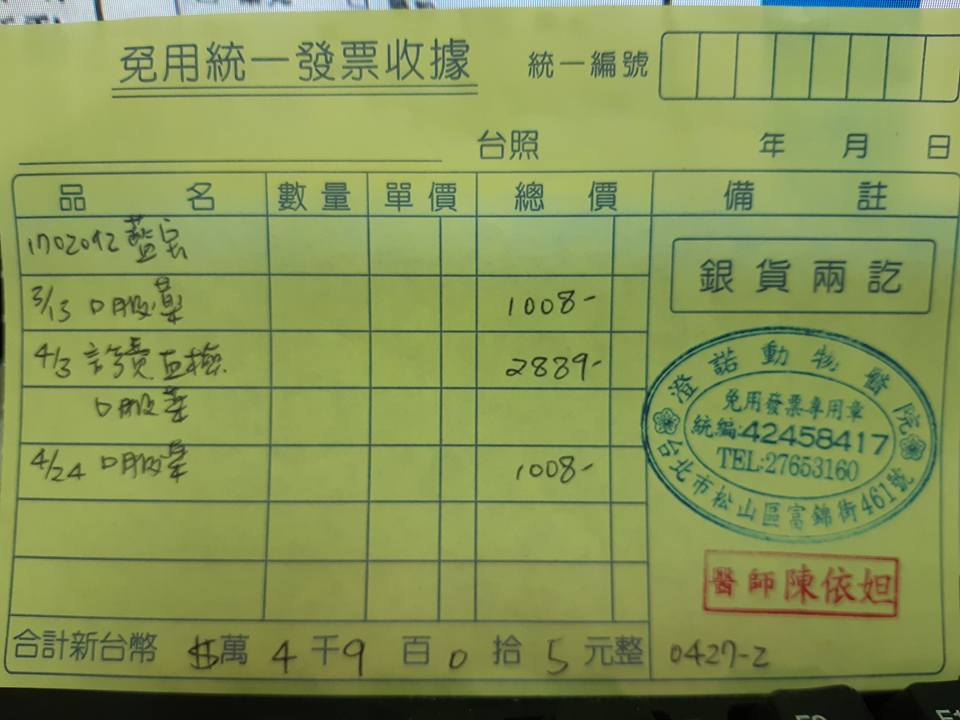 免用統一發票收據
統一編號
台照
年 月 日
品名 數量 單價 總價 備註
1702092 藍宝
3/13 口服藥 1008-
4/3 診費 血檢 2889-
口服藥
4/24 口服藥 1008-
銀貨兩訖
澄諾動物醫院
免用發票專用章
統編:42458417
TEL:27653160
台北市松山區富錦街461號
醫師陳依妲
合計新台幣 $萬4千9百0拾5元整
0427-2